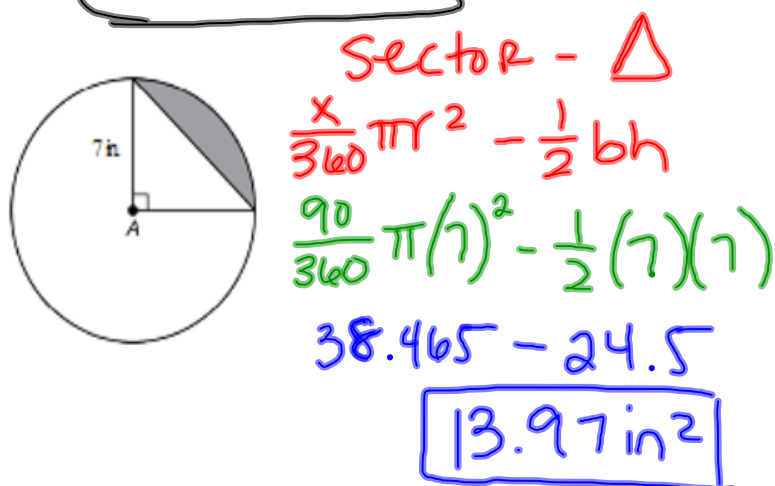 sector - Δ
7in
x/360 πr² - 1/2 bh
A
90/360 π(7)² - 1/2 (7)(7)
38.465 - 24.5
13.97 in²